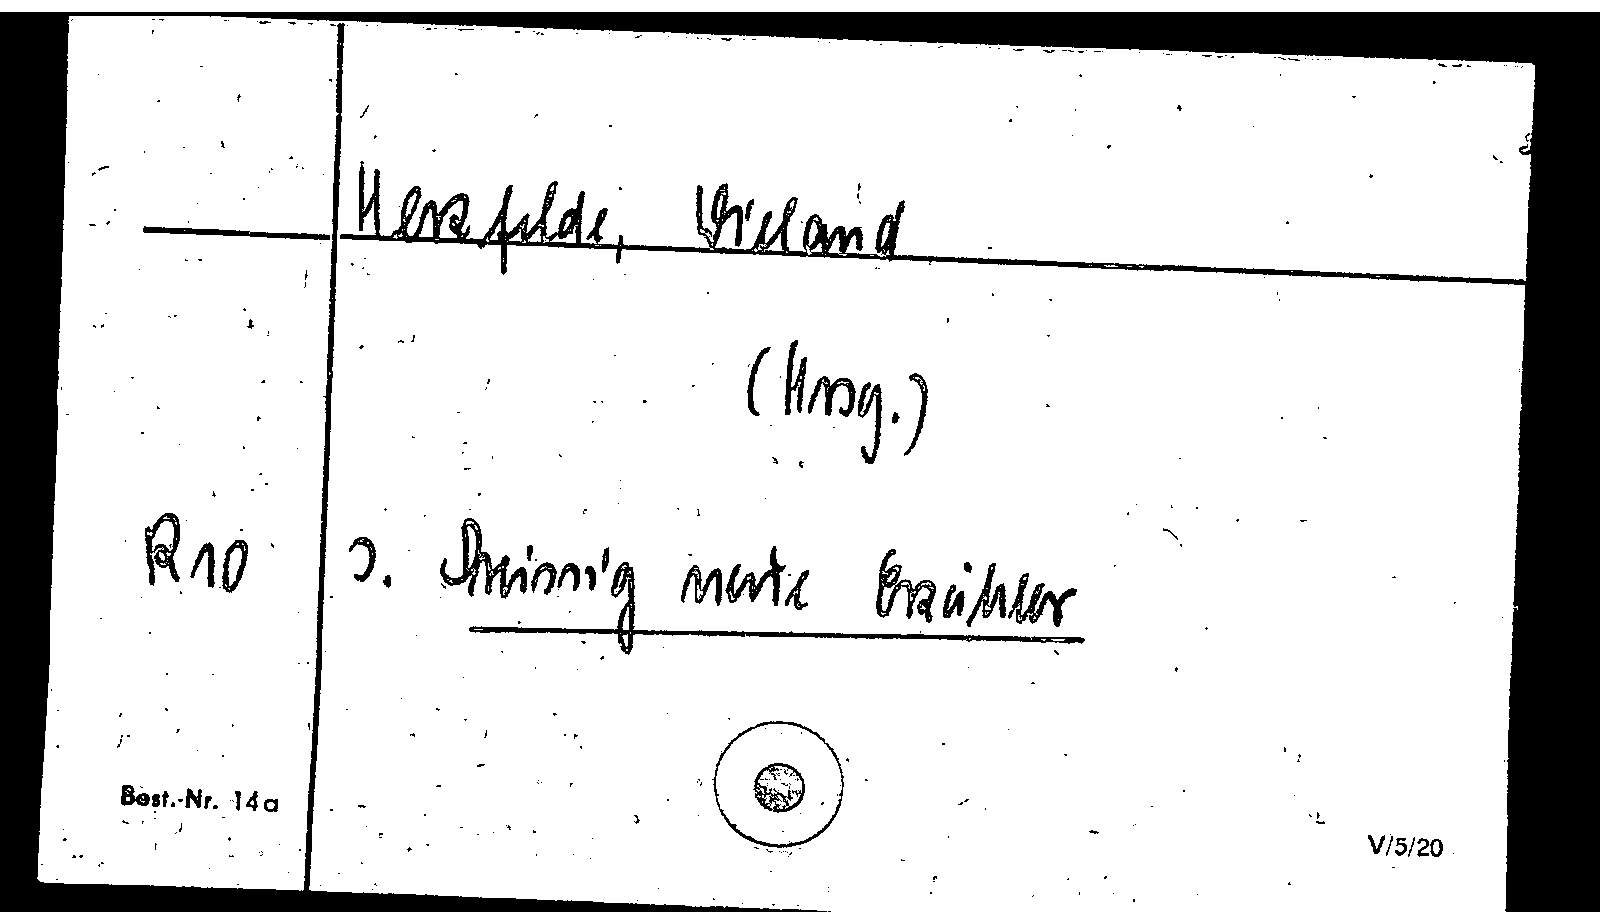 Herzfelde, Wieland
(Hrsg.)
R10 s. Dreissig neue Erzähler
Best.-Nr. 14a
V/5/20